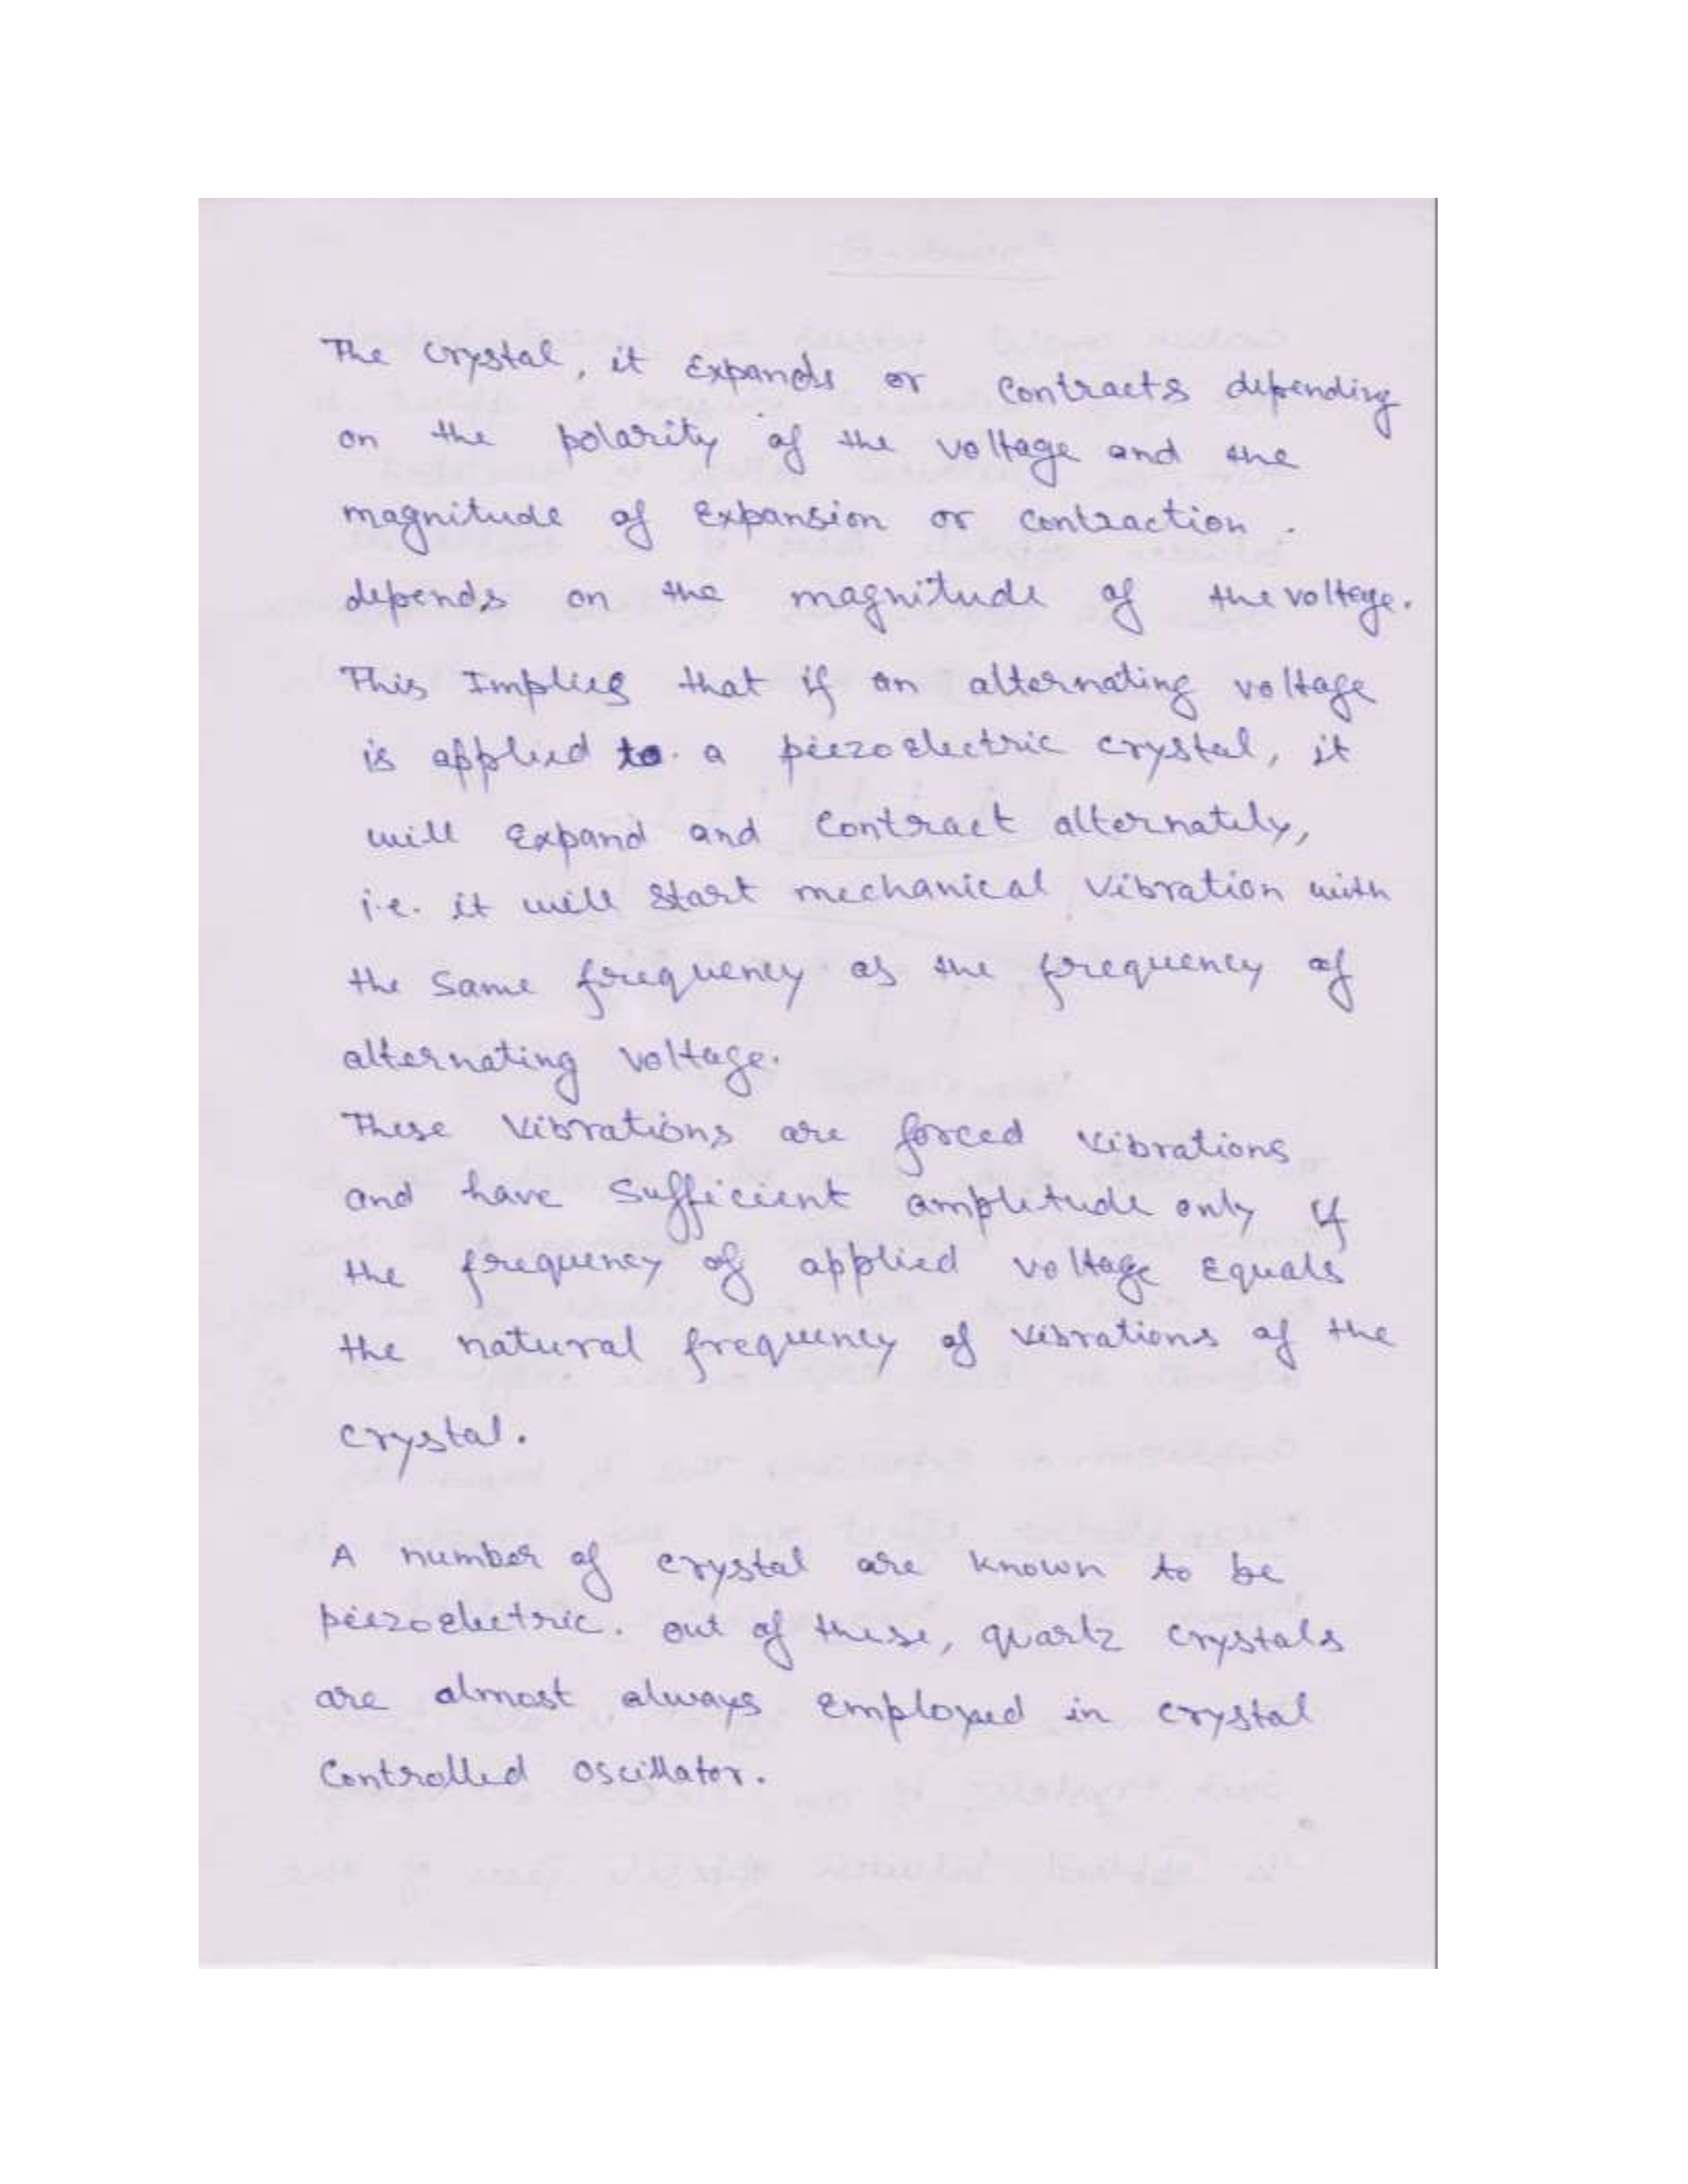 The crystal, it expands or contracts depending
on the polarity of the voltage and the
magnitude of Expansion or contraction.
depends on the magnitude of the voltage.
This Implies that if an alternating voltage
is applied to a piezoelectric crystal, it
will expand and contract alternately,
i.e. it will start mechanical vibration with
the same frequency as the frequency of
alternating voltage.
These vibrations are forced vibrations
and have sufficient amplitude only if
the frequency of applied voltage Equals
the natural frequency of vibrations of the
crystal.
A number of crystal are known to be
piezoelectric. out of these, quartz crystals
are almost always employed in crystal
Controlled oscillator.